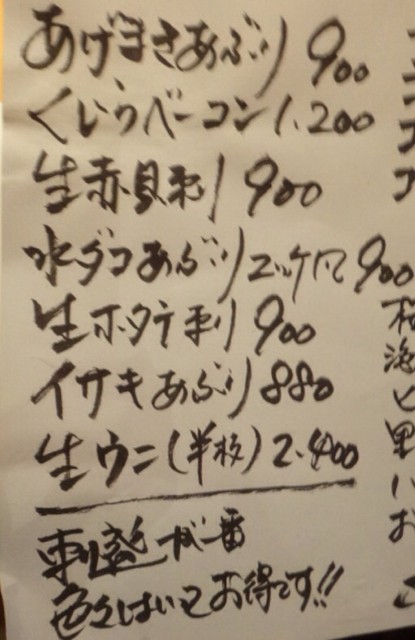 あげまきあぶり 900
くじらベーコン 1.200
生赤貝刺 900
水ダコあぶりユッケ風 900
生ホタテ刺 900
イサキあぶり 880
生ウニ(半枚) 2.400
刺盛が一番
色々はいってお得です!!